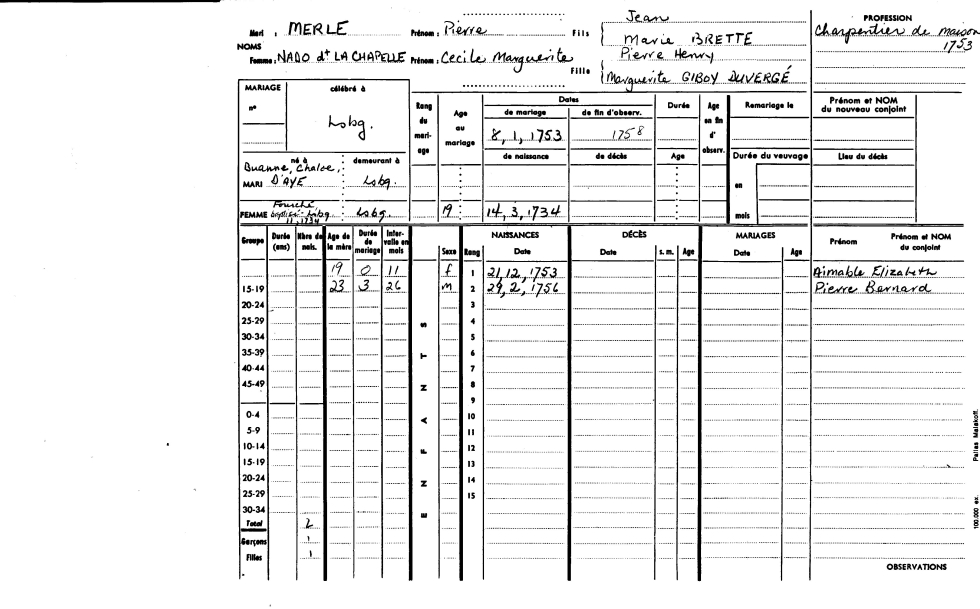 Jean
Mari : MERLE Prénom : Pierre Fils Marie BRETTE
NOMS
Femme : NADO dt LA CHAPELLE Prénom : Cecile Marguerite Fille Pierre Henry
Marguerite GIBOY DUVERGÉ
PROFESSION
Charpentier de maison
1753
MARIAGE célébré à
n°
Lsbg.
Rang du mariage
Age au mariage
Dates
de mariage de fin d'observ. Durée
8, 1, 1753 1758
de naissance de décès Age
Age en fin d'observ.
Remariage le
Prénom et NOM du nouveau conjoint
Durée du veuvage Lieu du décès
en
mois
né à demeurant à
Chaloe,
MARI D'AYE Lsbg.
FEMME baptisée Lsbg. Lsbg. 19 14, 3, 1734
11, 1734
Groupe Durée (ans) Nbre de nais. Age de la mère Durée de mariage Intervalle en mois
ENFANTS
Sexe Rang NAISSANCES Date DÉCÈS Date s. m. Age MARIAGES Date Age Prénom Prénom et NOM du conjoint
19 0 11 f 1 21, 12, 1753 Aimable Elizabeth
15-19 23 3 26 m 2 29, 2, 1756 Pierre Bernard
20-24 3
25-29 4
30-34 5
35-39 6
40-44 7
45-49 8
9
0-4 10
5-9 11
10-14 12
15-19 13
20-24 14
25-29 15
30-34
Total 2
Garçons 1
Filles 1
OBSERVATIONS
100.000 ex. Pallas Malakoff.